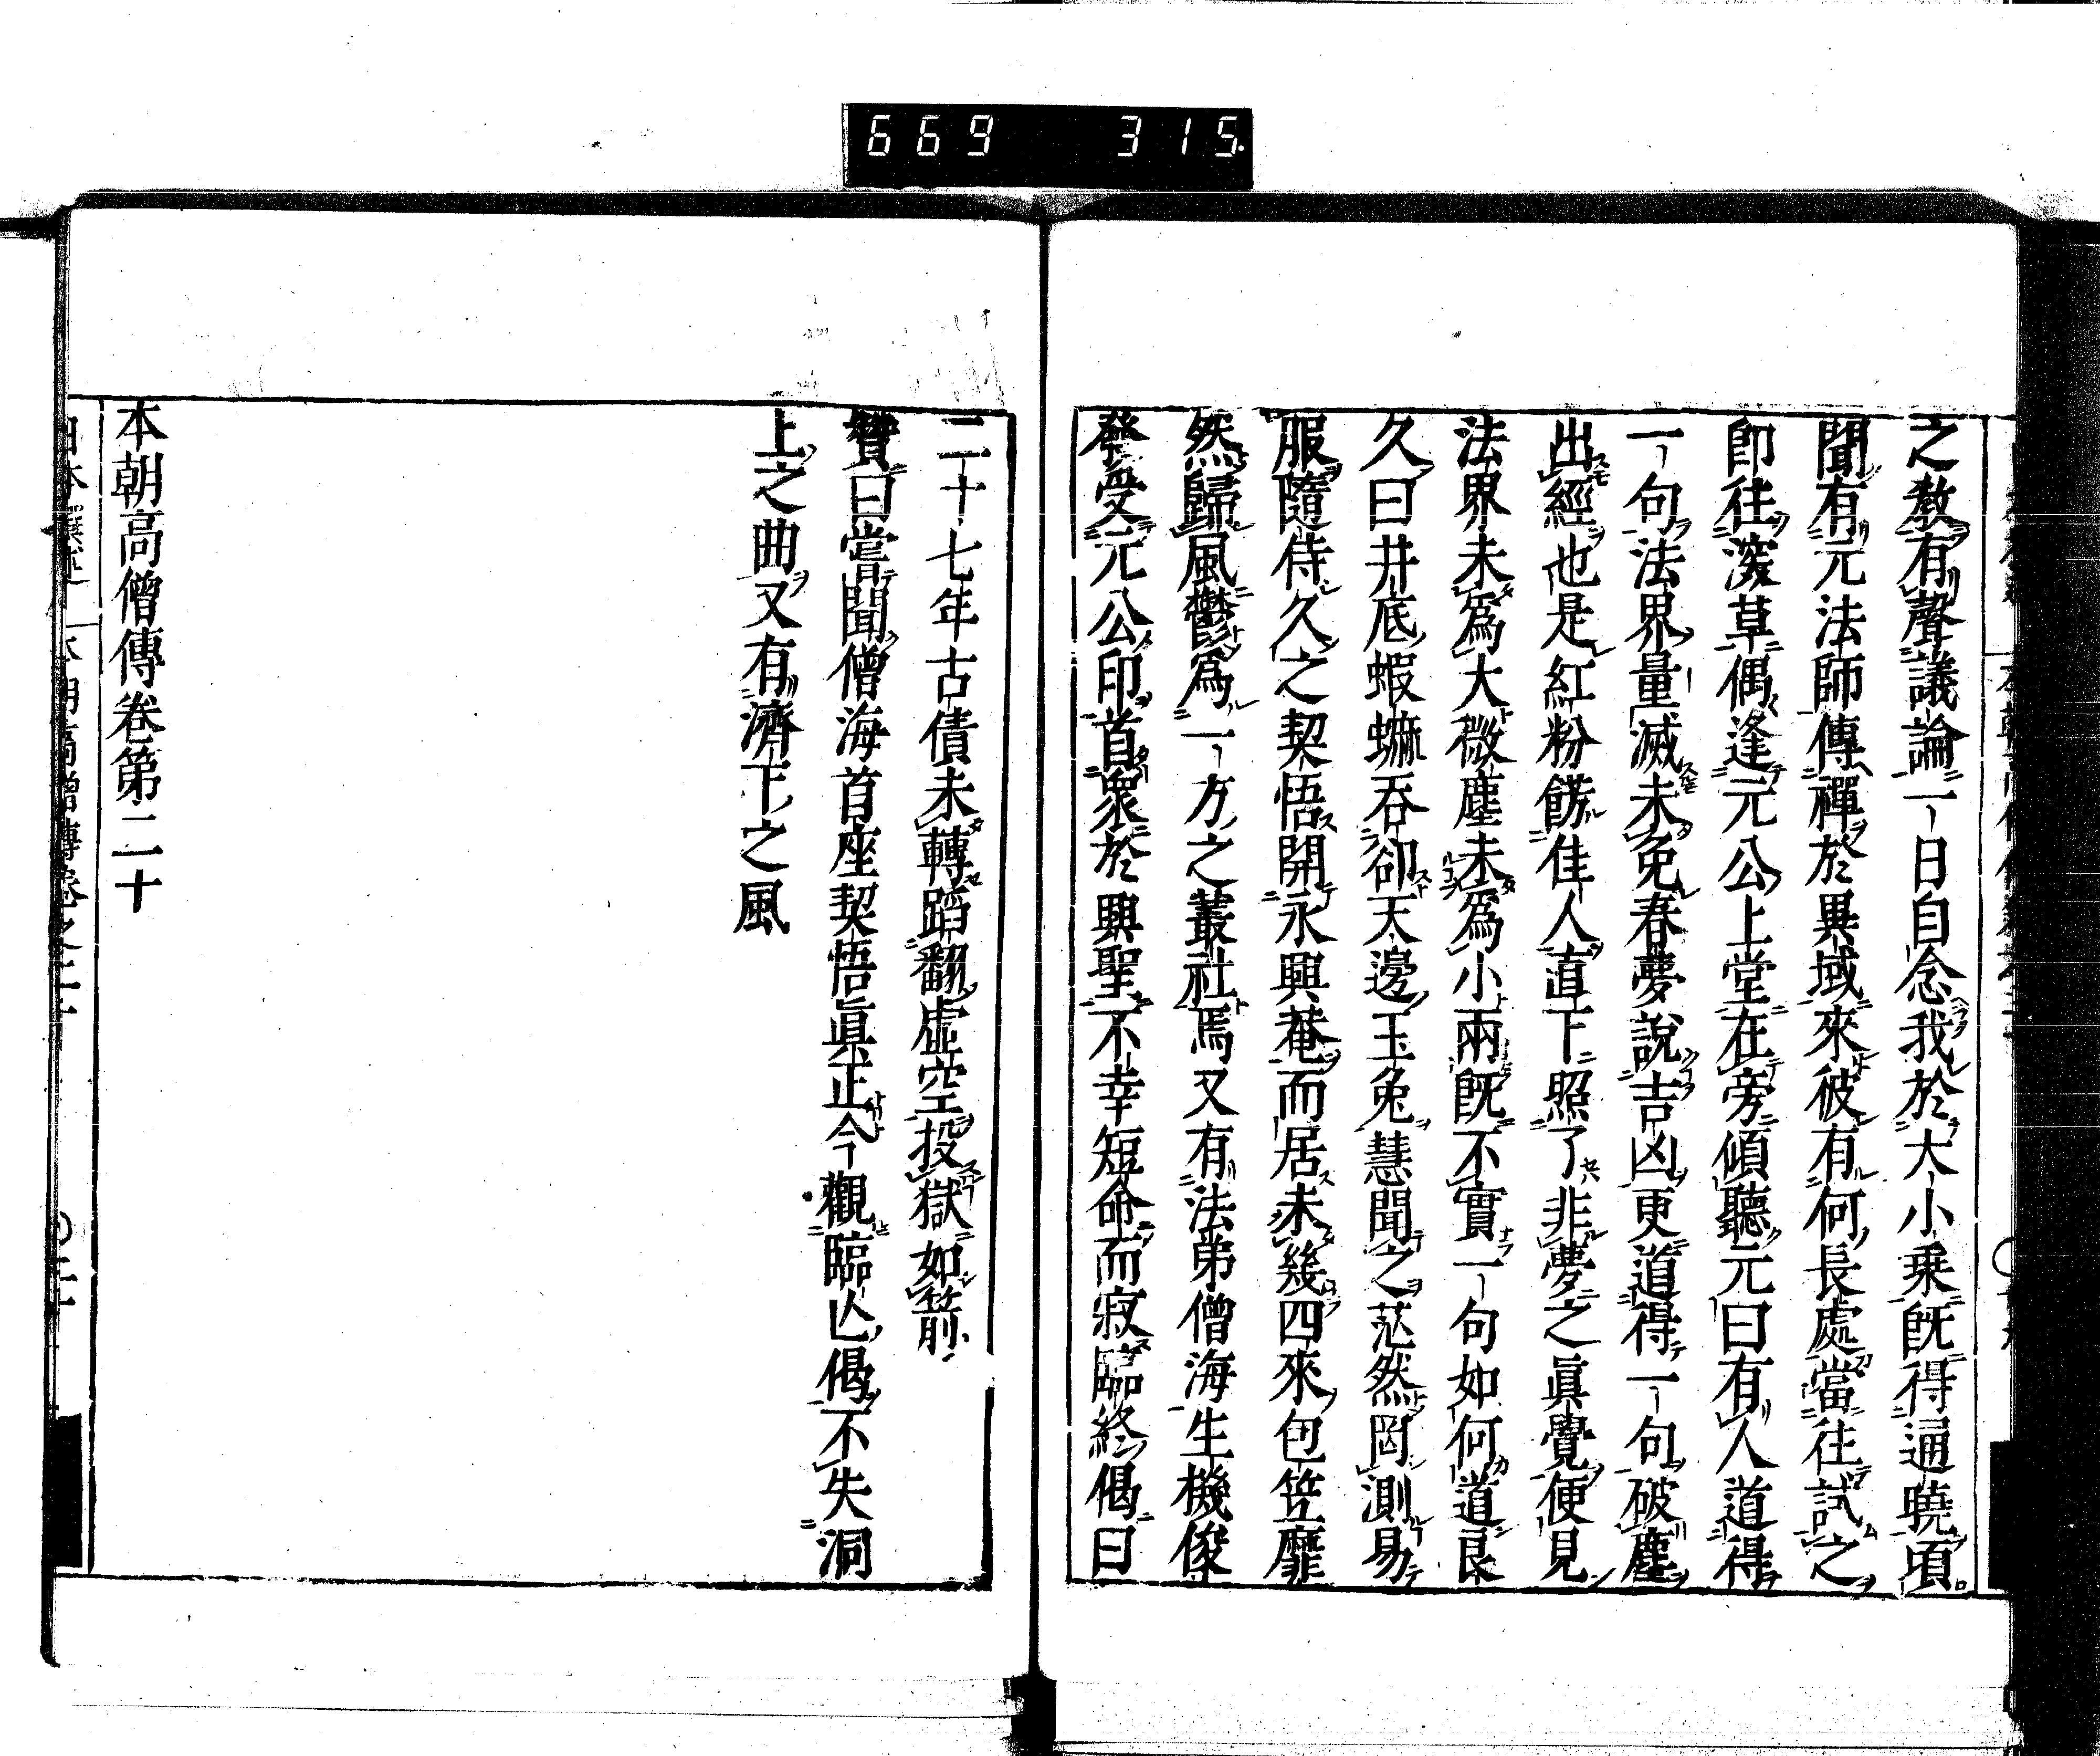 669 315
之敎有聲議論一日自念我於大小乘旣得通曉頃
聞有元法師傳禪於異域來彼有何長處當往試之
卽往深草偶逢元公上堂在旁傾聽元曰有人道得
一句法界量滅未免春夢說吉凶更道得一句破塵
出經也是紅粉餝佳人直下照了非夢之眞覺便見
法界未爲大微塵未爲小兩旣不實一句如何道良
久曰井底蝦蟆吞却天邊玉兔慧聞之茫然罔測易
服隨侍久之契悟開永興菴而居未幾四來包笠靡
然歸風鬱爲一方之叢社焉又有法弟僧海生機俊
發受元公印首衆於興聖不幸短命而寂臨終偈曰
二十七年古債未轉蹈翻虛空投獄如箭
贊曰嘗聞僧海首座契悟眞正今觀臨亾偈不失洞
上之曲又有濟下之風
本朝高僧傳卷第二十